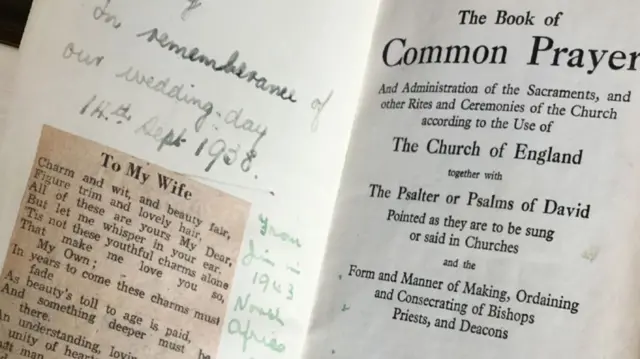 In remembrance of
our wedding-day
14th Sept 1938.
To My Wife
Charm and wit, and beauty fair,
Figure trim and lovely hair,
All of these are yours My Dear,
But let me whisper in your ear,
'Tis not these youthful charms alone
That make me love you so,
My Own;
In years to come these charms must
fade
As beauty's toll to age is paid,
And something deeper must be
there.
An understanding, lovin
unity of heart
at man
From
Jim in
1943
North
Africa
The Book of
Common Prayer
And Administration of the Sacraments, and
other Rites and Ceremonies of the Church
according to the Use of
The Church of England
together with
The Psalter or Psalms of David
Pointed as they are to be sung
or said in Churches
and the
Form and Manner of Making, Ordaining
and Consecrating of Bishops
Priests, and Deacons